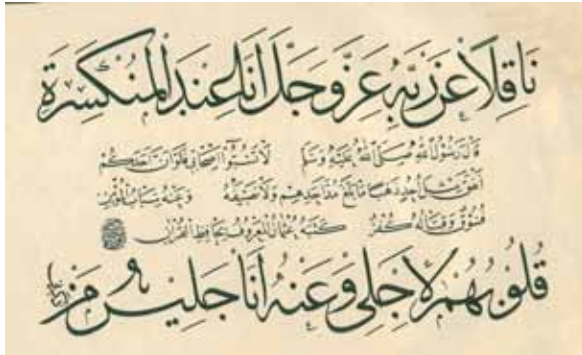 نَاقِلاً عَنْ رَبِّهِ عَزَّ وَجَلَّ أَنَا عِنْدَ الْمُنْكَسِرَةِ
قَالَ رَسُولُ اللهِ صَلَّى اللهُ عَلَيْهِ وَسَلَّمَ لَا تَسُبُّوا أَصْحَابِي فَلَوْ أَنَّ أَحَدَكُمْ
أَنْفَقَ مِثْلَ أُحُدٍ ذَهَبًا مَا بَلَغَ مُدَّ أَحَدِهِمْ وَلَا نَصِيفَهُ وَعَنْهُ سِبَابُ الْمُؤْمِنِ
فُسُوقٌ وَقِتَالُهُ كُفْرٌ كَتَبَهُ عُثْمَانُ الْمَعْرُوفُ بِحَافِظِ الْقُرْآنِ
قُلُوبُهُمْ لِأَجْلِي وَعَنْهُ أَنَا جَلِيسُ مَنْ